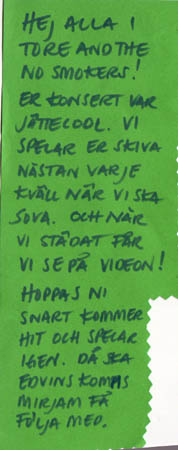 HEJ ALLA I
TORE AND THE
NO SMOKERS!
ER KONSERT VAR
JÄTTECOOL. VI
SPELAR ER SKIVA
NÄSTAN VARJE
KVÄLL NÄR VI SKA
SOVA. OCH NÄR
VI STÄDAT FÅR
VI SE PÅ VIDEON!
HOPPAS NI
SNART KOMMER
HIT OCH SPELAR
IGEN. DÅ SKA
EDVINS KOMPIS
MIRJAM FÅ
FÖLJA MED.